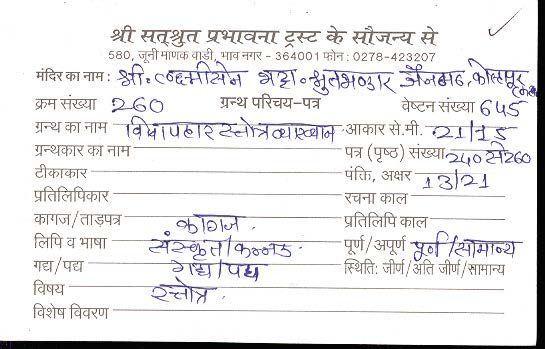 श्री सत्श्रुत प्रभावना ट्रस्ट के सौजन्य से
580, जूनी माणक वाडी, भाव नगर - 364001 फोन : 0278-423207
मंदिर का नाम : श्री. लक्ष्मीसेन भट्टा. श्रुतभण्डार जैनमठ, कोल्हापुर
क्रम संख्या 260 ग्रन्थ परिचय-पत्र वेष्टन संख्या 645
ग्रन्थ का नाम विषापहार स्तोत्र व्याख्यान आकार से.मी. 21/15
ग्रन्थकार का नाम पत्र (पृष्ठ) संख्या 240 से 260
टीकाकार पंक्ति, अक्षर 13/21
प्रतिलिपिकार रचना काल
कागज/ताड़पत्र कागज. प्रतिलिपि काल
लिपि व भाषा संस्कृत/कन्नड पूर्ण/अपूर्ण पूर्ण/सामान्य
गद्य/पद्य गद्य/पद्य स्थिति: जीर्ण/अति जीर्ण/सामान्य
विषय स्तोत्र.
विशेष विवरण